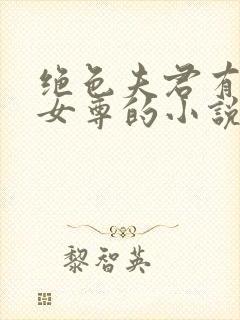 绝色夫君有
女尊的小説
黎智英